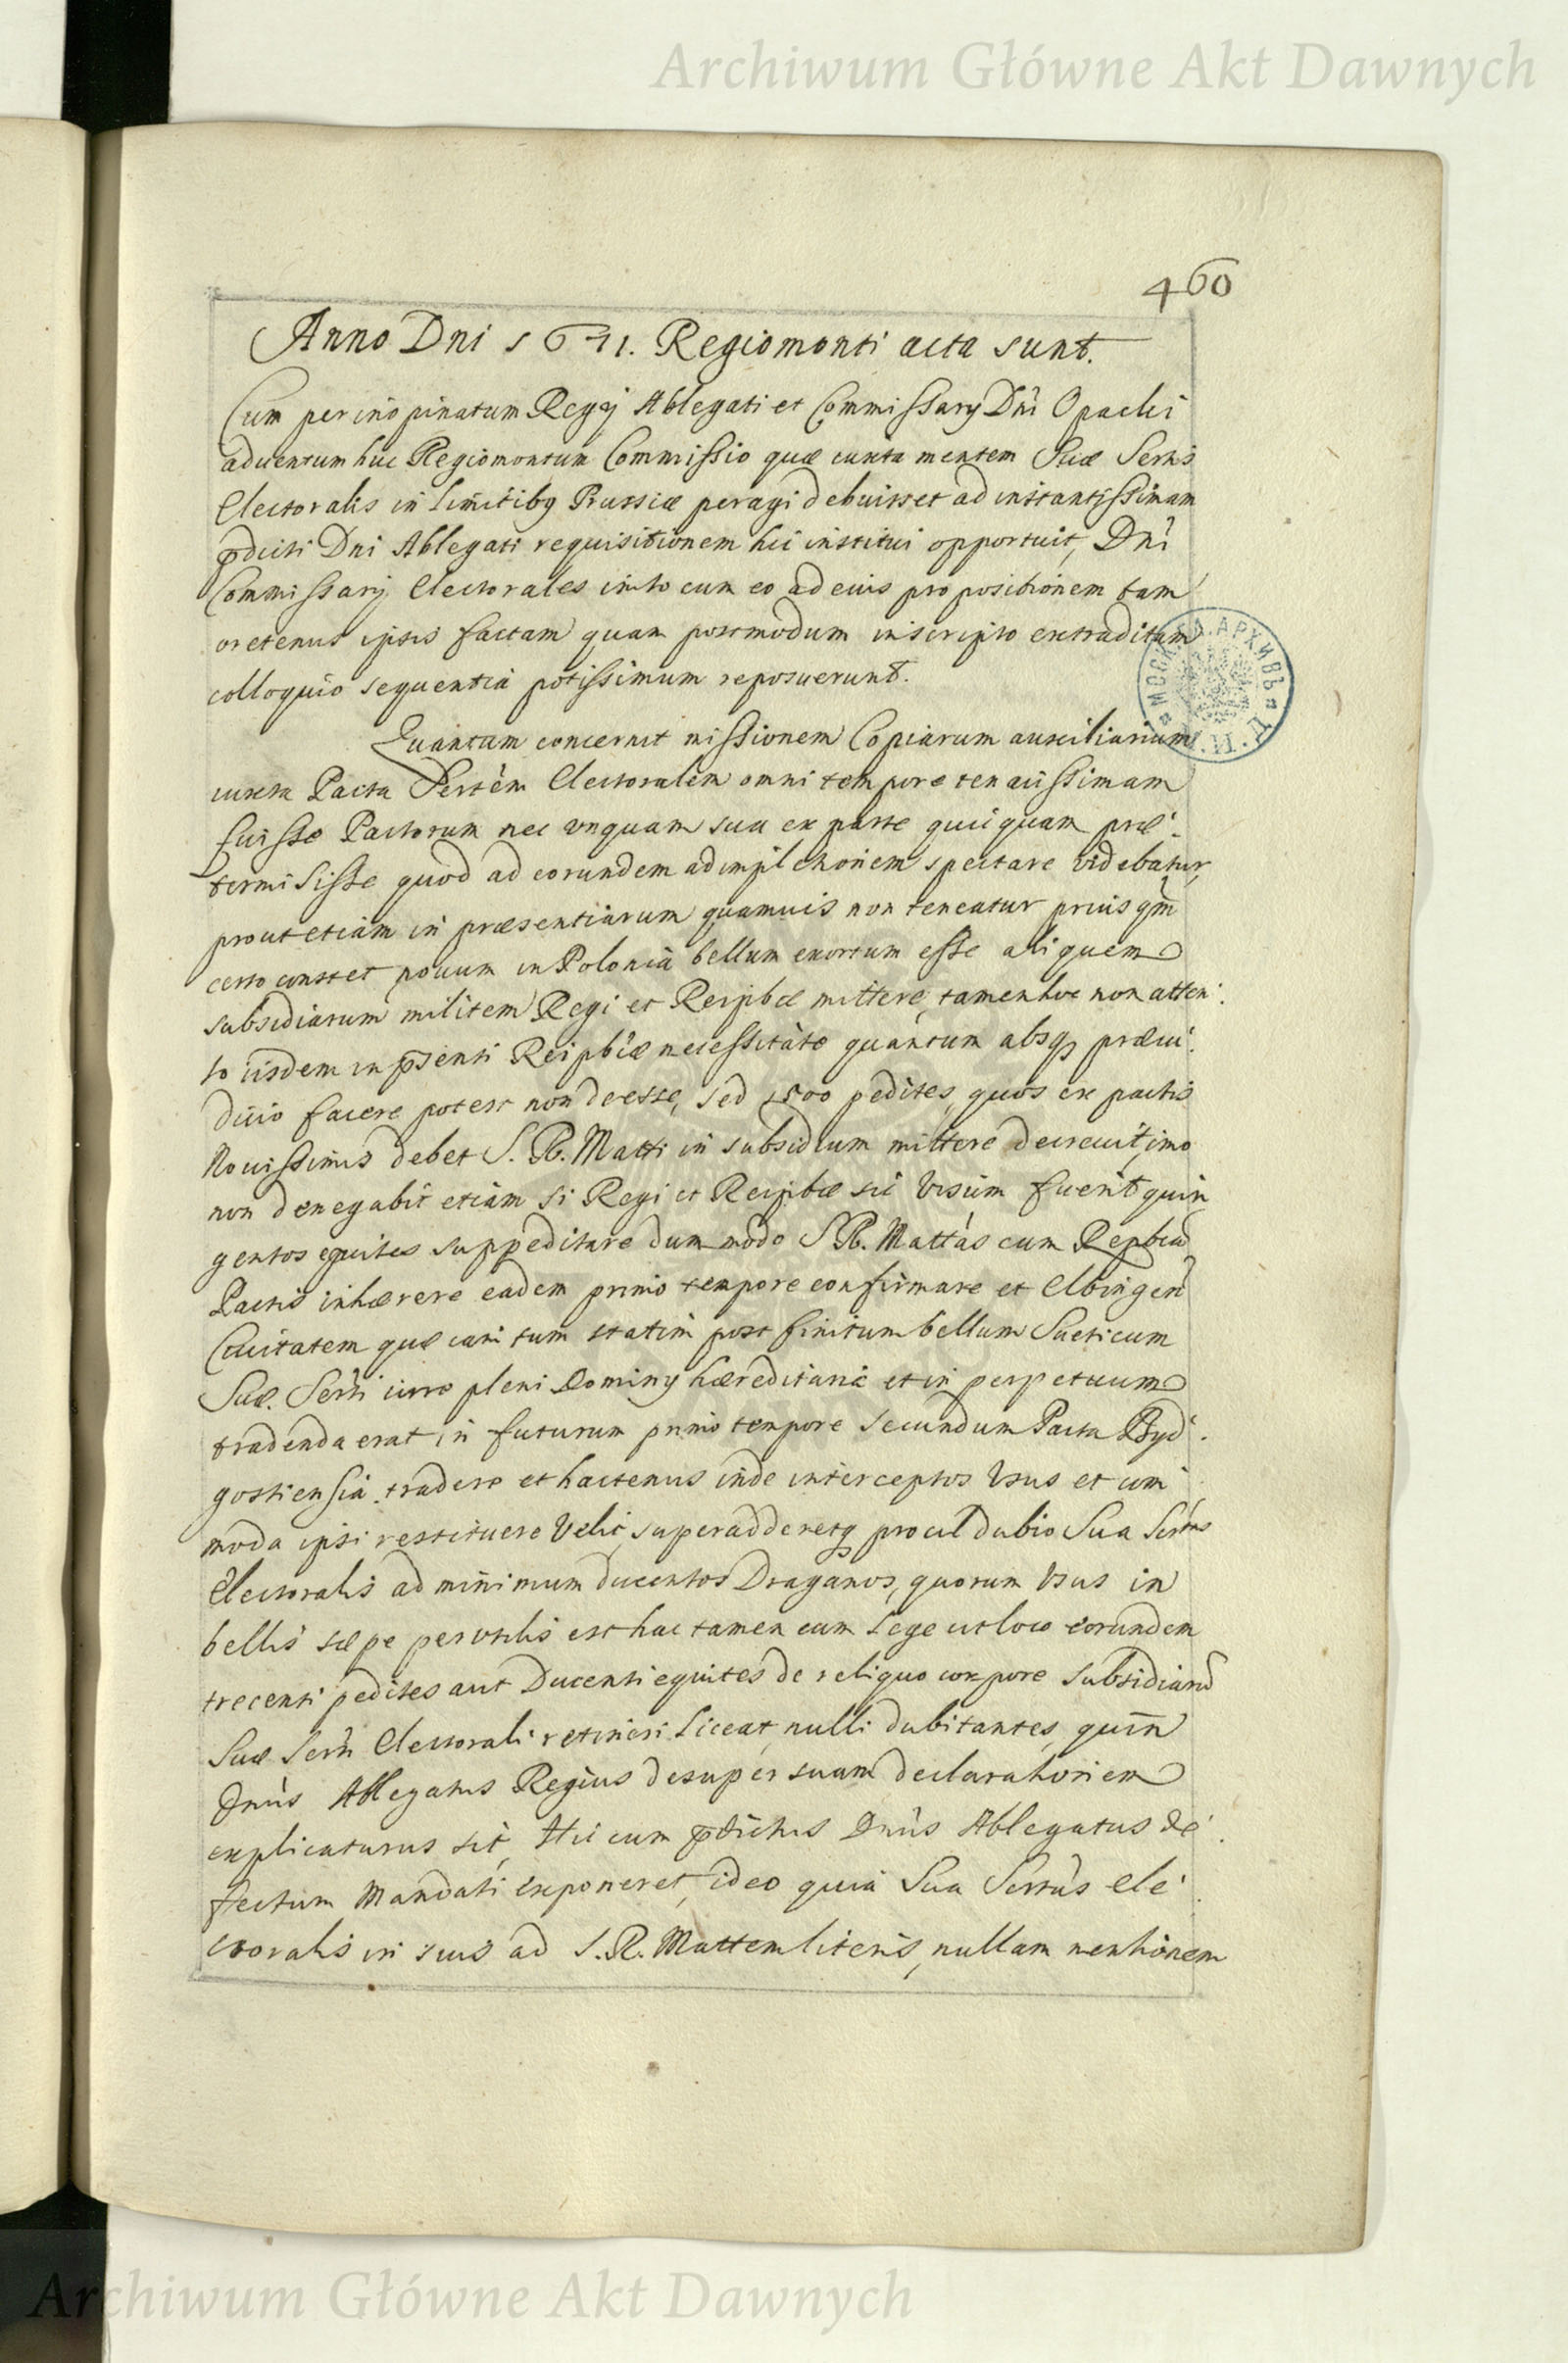 Archiwum Główne Akt Dawnych
460
Anno Dni 1671. Regiomonti acta sunt.
Cum per inopinatum Regij Ablegati et Commissarij Dni Opachi
aduentum huc Regiomontum Commissio quæ iuxta mentem Suæ Sertis
Electoralis in limitibq Prussiæ peragi debuisset ad instantissimam
pdicti Dni Ablegati requisitionem hic institui opportuit, Dni
Commissarij Electorales inito cum eo ad eius propositionem tam
oretenus ipsis factam quam postmodum in scripto extraditam
colloquio sequentia potissimum reposuerunt.
Quantum concernit missionem Copiarum auxiliarium
iuxta Pacta Sertem Electoralem omni tempore tenacissimam
fuisse Pactorum nec vnquam sua ex parte quicquam præ
termisisse quod ad eorundem adimpletionem spectare videbatur,
prout etiam in præsentiarum quamuis non teneatur prius qm
certo constet nouum in Polonia bellum exortum esse aliquem
subsidiarum militem Regi et Reipbcæ mittere, tamen hoc non atten
to iisdem in psenti Reipbcæ necessitate quantum absq præiu
dicio facere potest non deesse, sed 1500 pedites, quos ex pactis
Nouissimis debet S. R. Matti in subsidium mittere decreuit, imo
non denegabit etiam si Regi et Reipbcæ sic visum fuerit quin
gentos equites suppeditare dummodo S R. Mattas cum Repbca
Pactis inhærere eadem primo tempore confirmare et Elbingen
Ciuitatem quæ iam tum statim post finitum bellum Sueticum
Suæ Serti iure pleni Dominij hæreditarie et in perpetuum
tradenda erat, in futurum primo tempore secundum Pacta Byd
gostiensia tradere et hactenus inde interceptos vsus et com
moda ipsi restituere velit, superadderetq procul dubio Sua Sertas
Electoralis ad minimum ducentos Draganos, quorum vsus in
bellis sæpe perutilis est hac tamen cum lege ut loco eorundem
trecenti pedites aut Ducenti equites de reliquo corpore subsidiario
Suæ Serti Electorali retineri liceat, nulli dubitantes, quin
Dnus Ablegatus Regius desuper suam declarationem
explicaturus sit, Hic cum pdictus Dnus Ablegatus de
fectum Mandati exponeret, ideo quia Sua Sertas Ele
ctoralis in suis ad S. R. Mattem literis, nullam mentionem
МОСКОВ. АРХИВЪ
Archiwum Główne Akt Dawnych